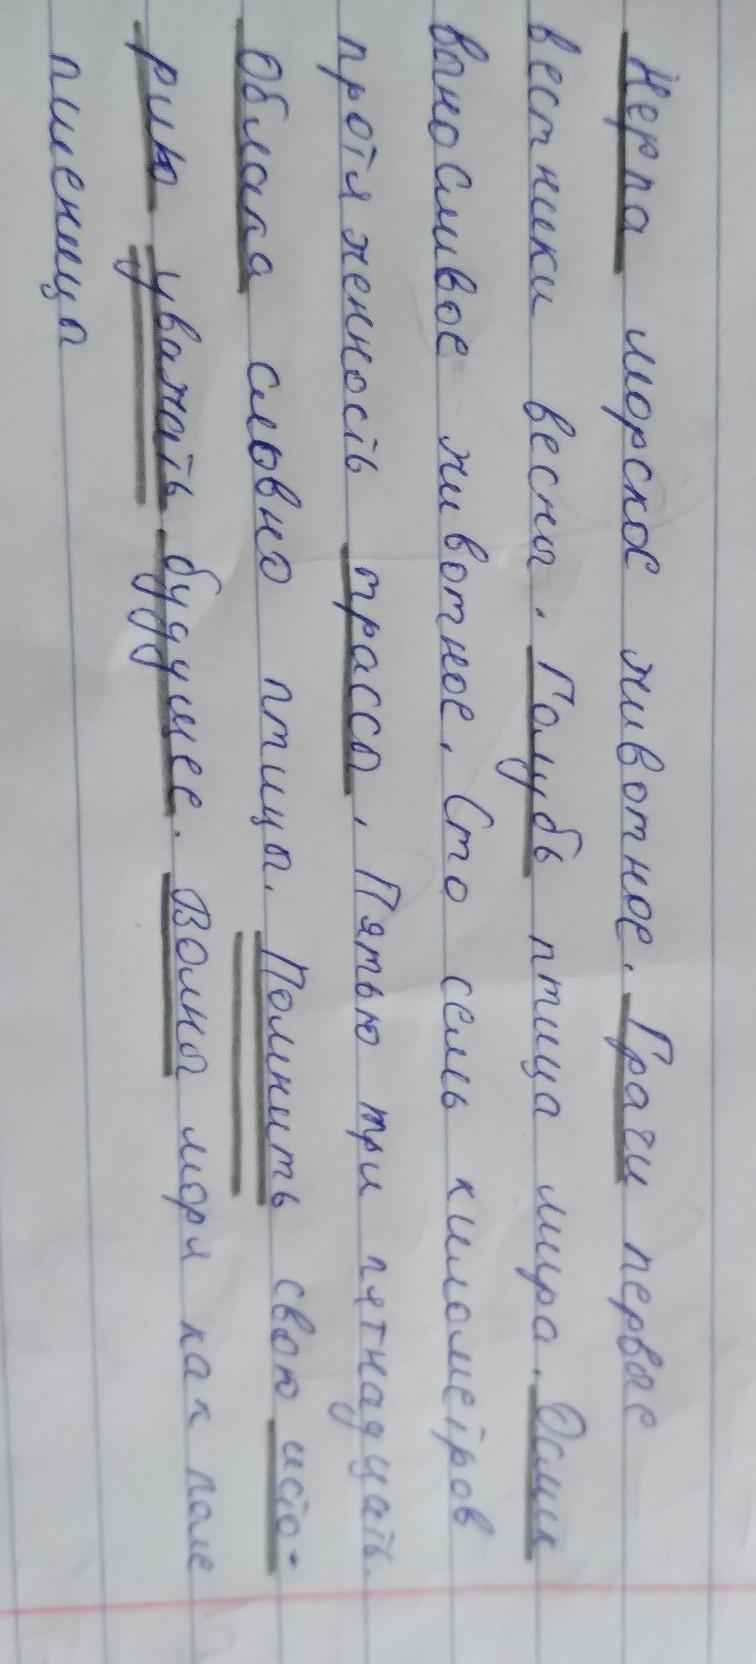 Нерпа морское животное. Грачи первые
вестники весны. Голубь птица мира. Ослик
выносливое животное. Сто семь километров
протяженность трассы. Пятью три пятнадцать.
Облака словно птицы. Помнить свою исто-
рию уважать будущее. Волны моря как поле
пшеницы